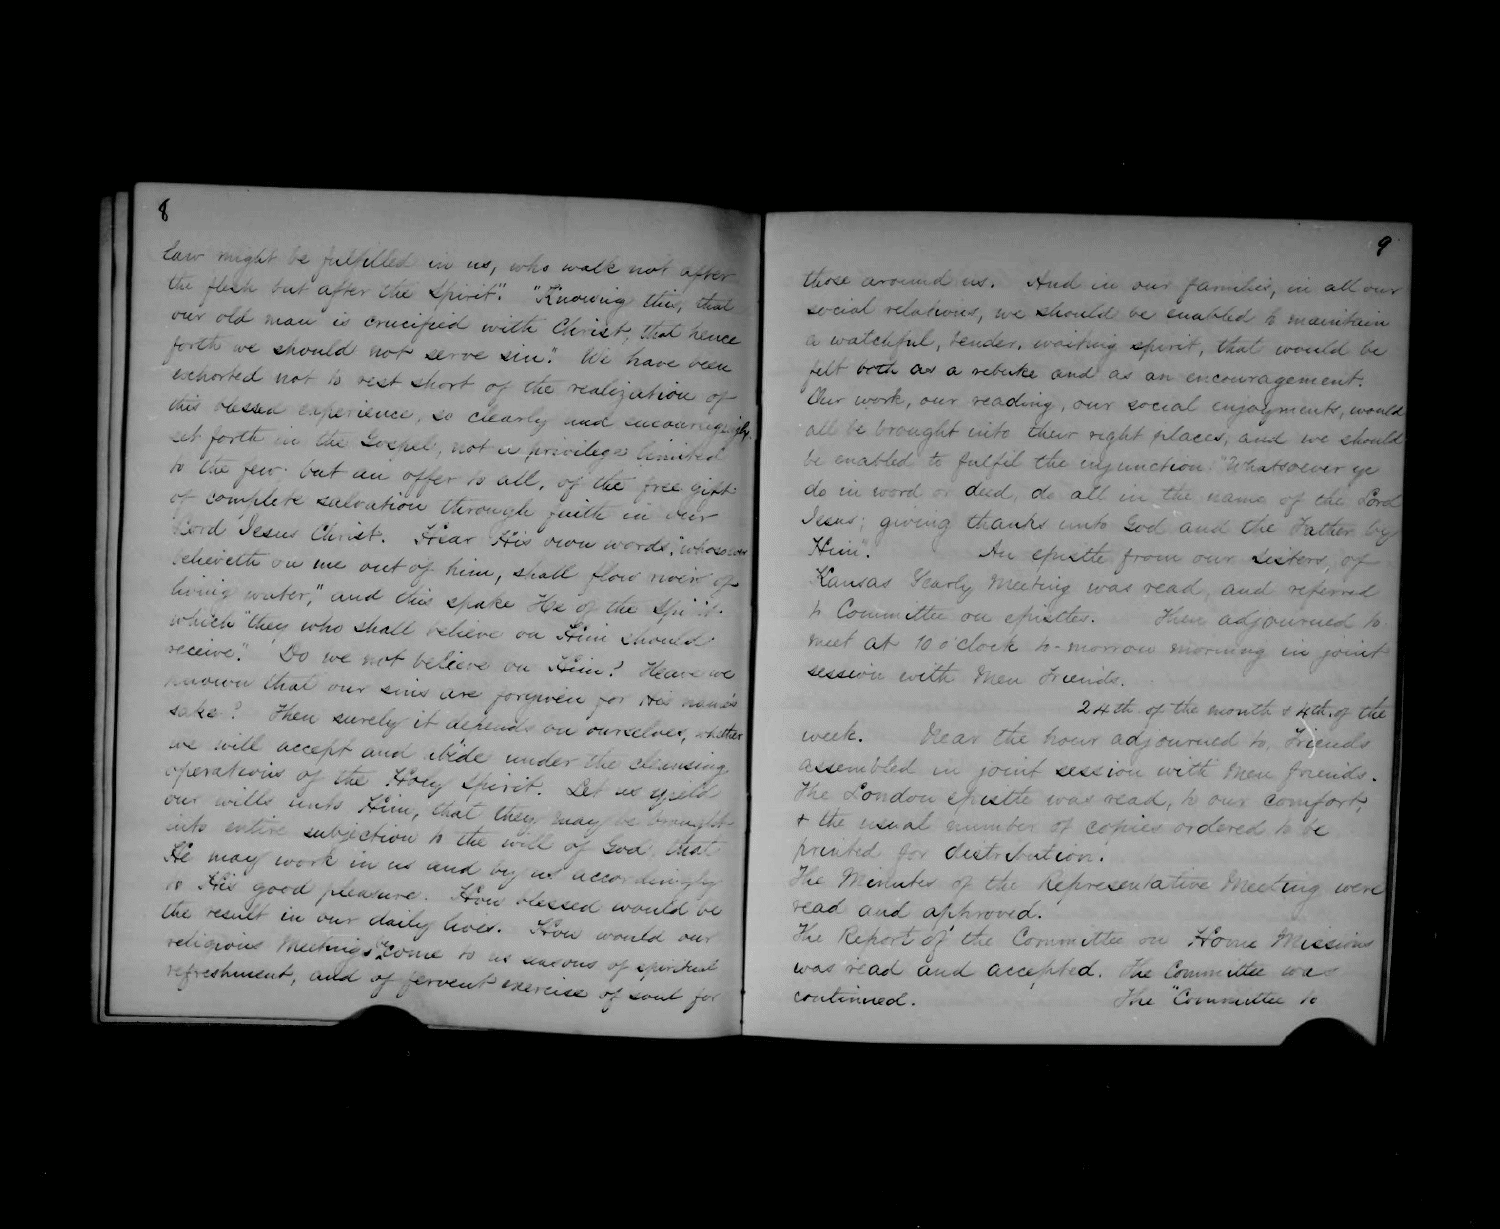 8
Law might be fulfilled in us, who walk not after
the flesh but after the Spirit". "Knowing this, that
our old man is crucified with Christ, that hence
forth we should not serve sin." We have been
exhorted not to rest short of the realization of
this blessed experience, so clearly and encouragingly
set forth in the Gospel, not a privilege limited
to the few but an offer to all, of the free gift
of complete salvation through faith in our
Lord Jesus Christ. Hear His own words, "whosoever
believeth on me out of him, shall flow rivers of
living water," and this spake He of the Spirit
which "they who shall believe on Him should
receive." Do we not believe on Him? Have we
known that our sins are forgiven for His name's
sake? Then surely it depends on ourselves, whether
we will accept and abide under the cleansing
operations of the Holy Spirit. Let us yield
our wills unto Him, that they may be brought
into entire subjection to the will of God, that
He may work in us and by us accordingly
to His good pleasure. How blessed would be
the result in our daily lives. How would our
religious Meetings become to us seasons of spiritual
refreshment, and of fervent exercise of soul for
9
those around us. And in our families, in all our
social relations, we should be enabled to maintain
a watchful, tender, waiting spirit, that would be
felt both as a rebuke and as an encouragement.
Our work, our reading, our social enjoyments, would
all be brought into their right places, and we should
be enabled to fulfil the injunction. "Whatsoever ye
do in word or deed, do all in the name of the Lord
Jesus; giving thanks unto God and the Father by
Him". An epistle from our sisters, of
Kansas Yearly Meeting was read, and referred
to Committee on epistles. Then adjourned to
meet at 10 o'clock to-morrow morning in joint
session with Men Friends.
24th of the month & 4th. of the
week. Near the hour adjourned to, Friends
assembled in joint session with Men friends.
The London epistle was read, to our comfort,
& the usual number of copies ordered to be
printed for distribution.
The Minutes of the Representative Meeting were
read and approved.
The Report of the Committee on Home Missions
was read and accepted. The Committee was
continued. The "Committee to